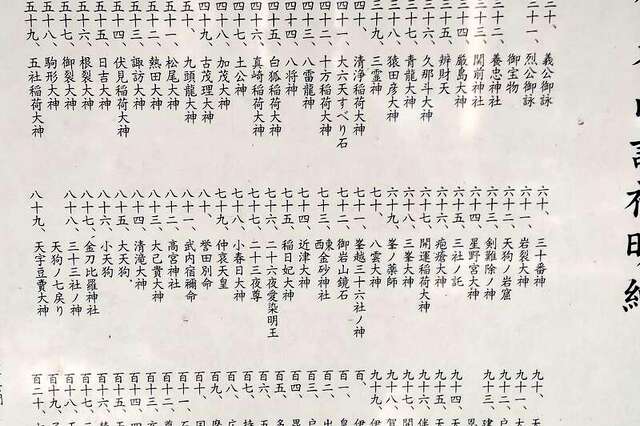 三十、義公御詠
三十一、烈公御詠
御宝物
三十二、養忠神社
三十三、関前神社
三十四、厳島大神
三十五、辨財天
三十六、久那斗大神
三十七、青龍大神
三十八、猿田彦大神
三十九、三霊神
四十、清浄稲荷大神
四十一、大六天すべり石
四十二、十方稲荷大神
四十三、八雷龍神
四十四、八将神
四十五、白狐稲荷大神
四十六、真崎稲荷大神
四十七、土公神
四十八、加茂大神
四十九、古茂理大神
五十、九頭龍大神
五十一、松尾大神
五十二、熱田大神
五十三、諏訪大神
五十四、伏見稲荷大神
五十五、日吉大神
五十六、根裂大神
五十七、御裂大神
五十八、駒形大神
五十九、五社稲荷大神
六十、三十番神
六十一、岩裂大神
六十二、天狗ノ岩窟
六十三、剣難除ノ神
六十四、星野宮大神
六十五、三社ノ託
六十六、疱瘡大神
六十七、開運稲荷大神
六十八、三峯大神
六十九、峯ノ薬師
七十、八雲大神
七十一、峯越三十六社ノ神
七十二、御岩山鏡石
七十三、東西金砂神社
七十四、近津大神
七十五、稲日妃大神
七十六、二十六夜愛染明王
七十七、二十三夜尊
七十八、小春日大神
七十九、仲哀天皇
八十、誉田別命
八十一、武内宿禰命
八十二、高宮神社
八十三、大己貴大神
八十四、清滝大神
八十五、大天狗
八十六、小天狗
八十七、金刀比羅神社
八十八、三十三社ノ神
天狗ノ七戻り
八十九、天宇豆賣大神
九十、
九十一、
九十二、
九十三、
九十四、
九十五、
九十六、
九十七、
九十八、
九十九、
百、
百一、
百二、
百三、
百四、
百五、
百六、
百七、
百八、
百九、
百十、
百十一、
百十二、
百十三、
百十四、
百十五、
百十六、
百十七、
百十八、
百十九、
百二十、